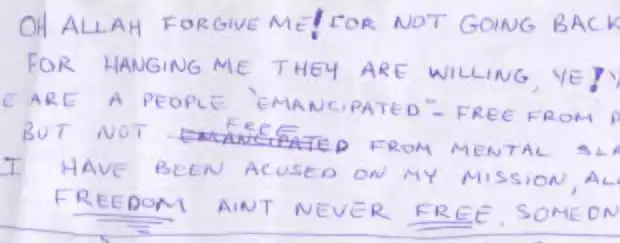 OH ALLAH FORGIVE ME! FOR NOT GOING BACK
FOR HANGING ME THEY ARE WILLING, YE!
E ARE A PEOPLE "EMANCIPATED"- FREE FROM
BUT NOT EMANCIPATED FREE FROM MENTAL SLA
I HAVE BEEN ACUSED ON MY MISSION, AL
FREEDOM AINT NEVER FREE, SOMEON